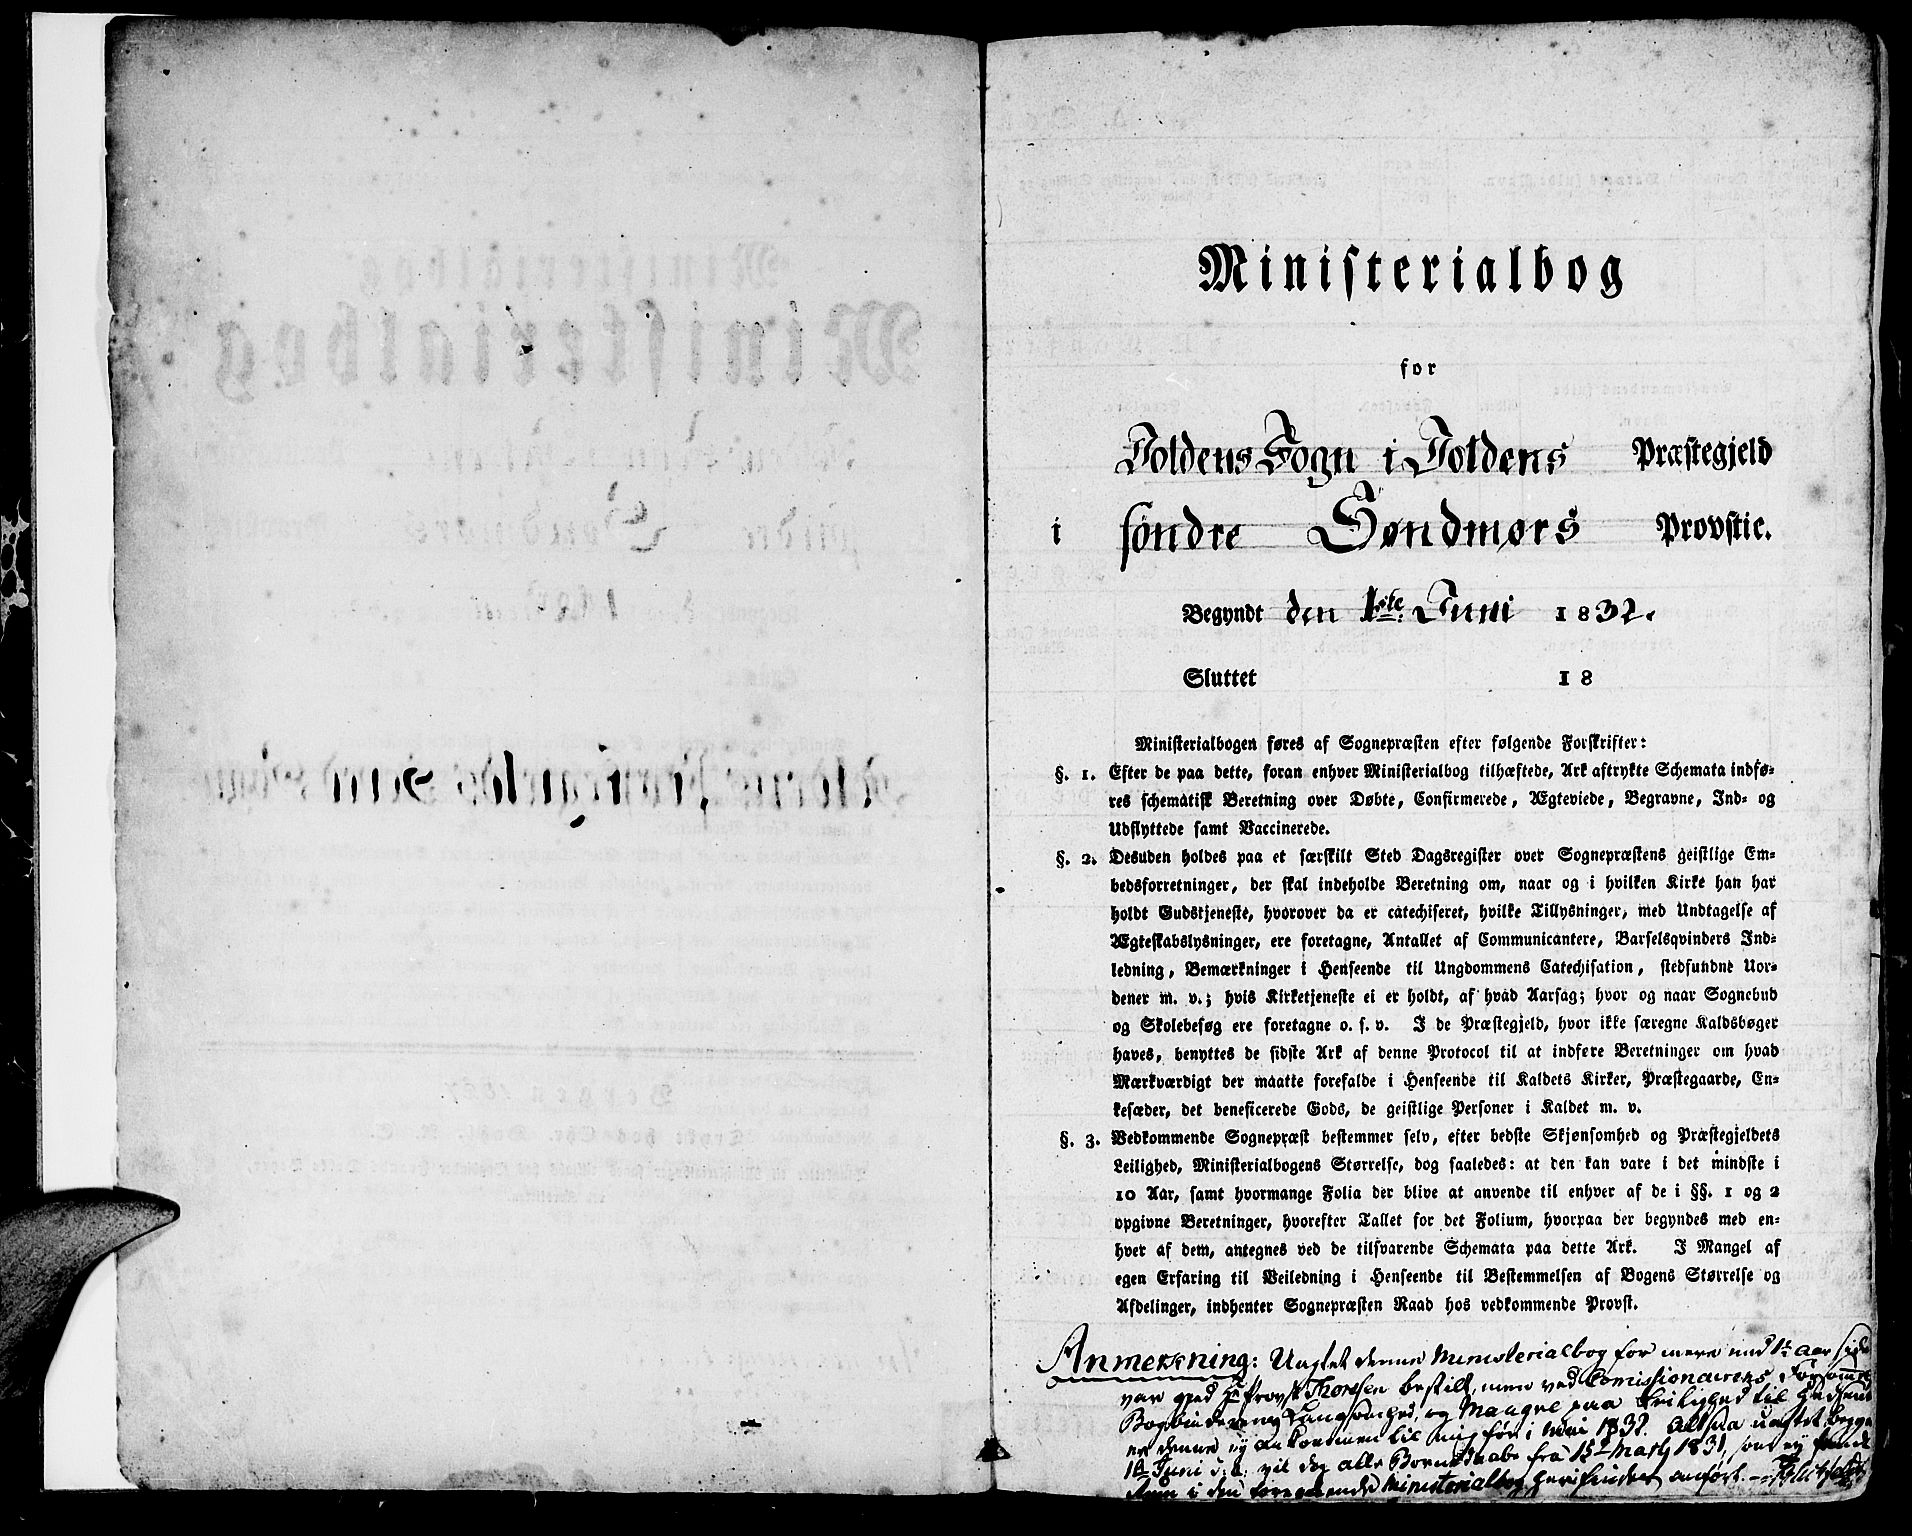 Ministerialbog
for
Voldens Sogn i Voldens Præstegjeld
i søndre Søndmørs Provstie.
Begyndt den 1ste Juni 1832.
Sluttet 18
Ministerialbogen føres af Sognepræsten efter følgende Forskrifter:
§. 1. Efter de paa dette, foran enhver Ministerialbog tilhæftede, Ark aftrykte Schemata indfø-
res schematisk Beretning over Døbte, Confirmerede, Ægteviede, Begravne, Ind- og
Udflyttede samt Vaccinerede.
§. 2. Desuden holdes paa et særskilt Sted Dagsregister over Sognepræstens geistlige Em-
bedsforretninger, der skal indeholde Beretning om, naar og i hvilken Kirke han har
holdt Gudstjeneste, hvorover da er catechiseret, hvilke Tillysninger, med Undtagelse af
Ægteskabslysninger, ere foretagne, Antallet af Communicantere, Barselqvinders Ind-
ledning, Bemærkninger i Henseende til Ungdommens Catechisation, stedfundne Uor-
dener m. v.; hvis Kirketjeneste ei er holdt, af hvad Aarsag; hvor og naar Sognebud
og Skolebesøg ere foretagne o. s. v. I de Præstegjeld, hvor ikke særegne Kaldsbøger
haves, benyttes de sidste Ark af denne Protocol til at indføre Beretninger om hvad
Mærkværdigt der maatte forefalde i Henseende til Kaldets Kirker, Præstegaarde, En-
kesæder, det beneficerede Gods, de geistlige Personer i Kaldet m. v.
§. 3. Vedkommende Sognepræst bestemmer selv, efter bedste Skjønsomhed og Præstegjeldets
Leilighed, Ministerialbogens Størrelse, dog saaledes: at den kan vare i det mindste i
10 Aar, samt hvormange Folia der blive at anvende til enhver af de i §§. 1 og 2
opgivne Beretninger, hvorefter Tallet for det Folium, hvorpaa der begyndes med en-
hver af dem, antegnes ved de tilsvarende Schemata paa dette Ark. I Mangel af
egen Erfaring til Veiledning i Henseende til Bestemmelsen af Bogens Størrelse og
Afdelinger, indhenter Sognepræsten Raad hos vedkommende Provst.
Anmerkning: Uagtet denne Ministerialbog for mere end 1½ Aar siden
var ved Hr Provst Thoresen bestilt, men ved Comissionairens
Bogbinderens Langsomhed, og Mangel paa Leilighed til
er denne ej ankommen til mig før i Mai 1832. Altsaa uagtet
1ste Juni vil dog alle Børnedaabe fra 15de Marts 1831, som ej
i den foregaaende Ministerialbog heri findes anført.